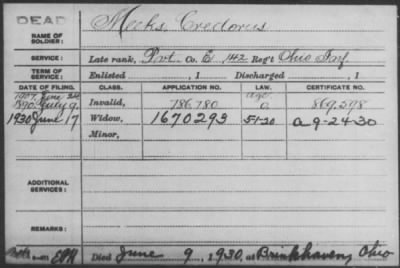 DEAD
NAME OF SOLDIER:
Meeks, Credorus
SERVICE:
Late rank, Pvt. Co. E, 142 Reg't Ohio Inf.
TERM OF SERVICE:
Enlisted , 1 Discharged , 1
DATE OF FILING. CLASS. APPLICATION NO. LAW. CERTIFICATE NO.
1907 June 24 age
1890 July 9. Invalid, 786.780 869,598
1930 June 17 Widow, 1670293 5-1-20 a-9-24-30
Minor,
ADDITIONAL SERVICES:
REMARKS:
Died June 9, 1930, at Brinkhaven, Ohio